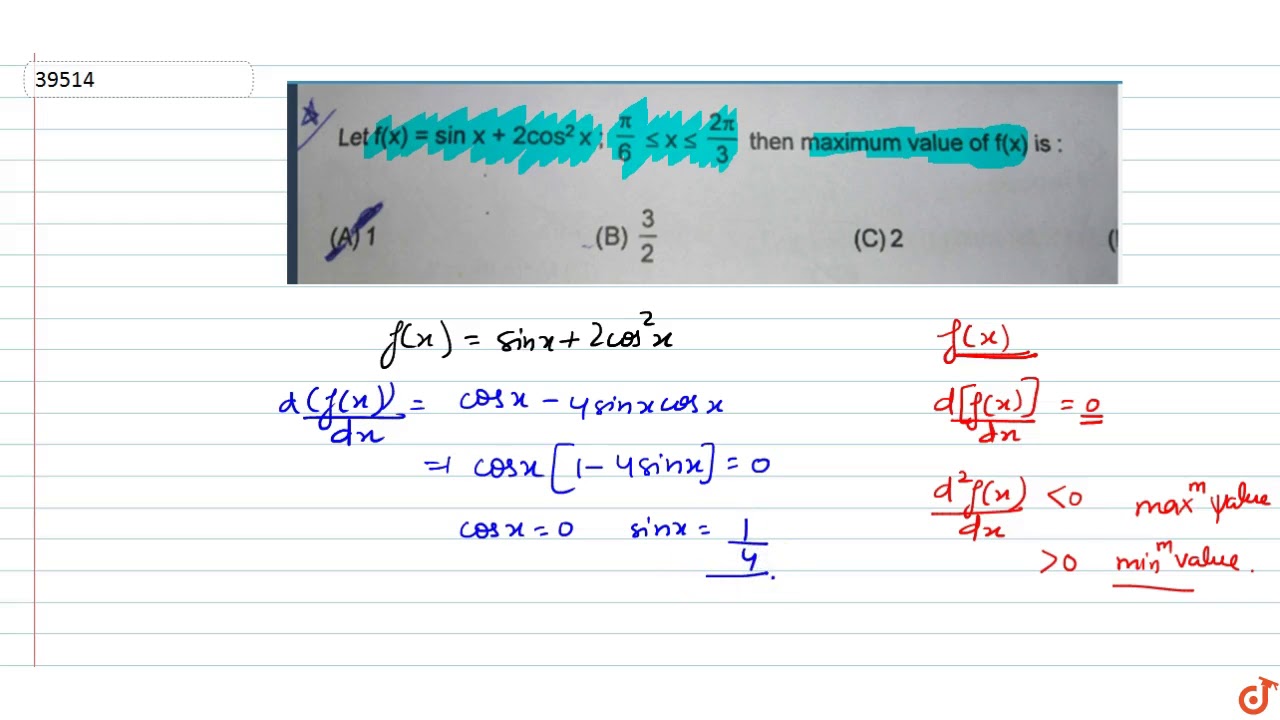 39514
Let f(x) = sin x + 2cos² x ; π/6 ≤ x ≤ 2π/3 then maximum value of f(x) is :
(A) 1 (B) 3/2 (C) 2 (
f(x) = sinx + 2cos²x
d(f(x))/dx = cosx - 4sinxcosx
⇒ cosx[1 - 4sinx] = 0
cosx = 0 sinx = 1/4.
f(x)
d[f(x)]/dx = 0
d²f(x)/dx < 0 maxᵐ value
> 0 minᵐ value.